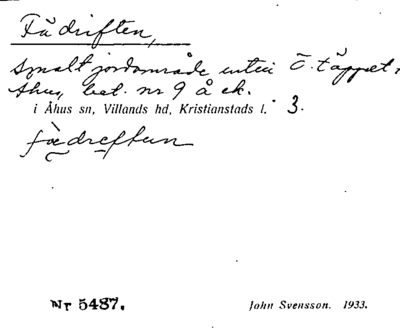 Fädriften,
smalt jordområde intill Ö. täppet,
Åhus, bet. nr 9 å ek.
i Åhus sn, Villands hd, Kristianstads l. 3.
Nr 5487.
John Svensson. 1933.